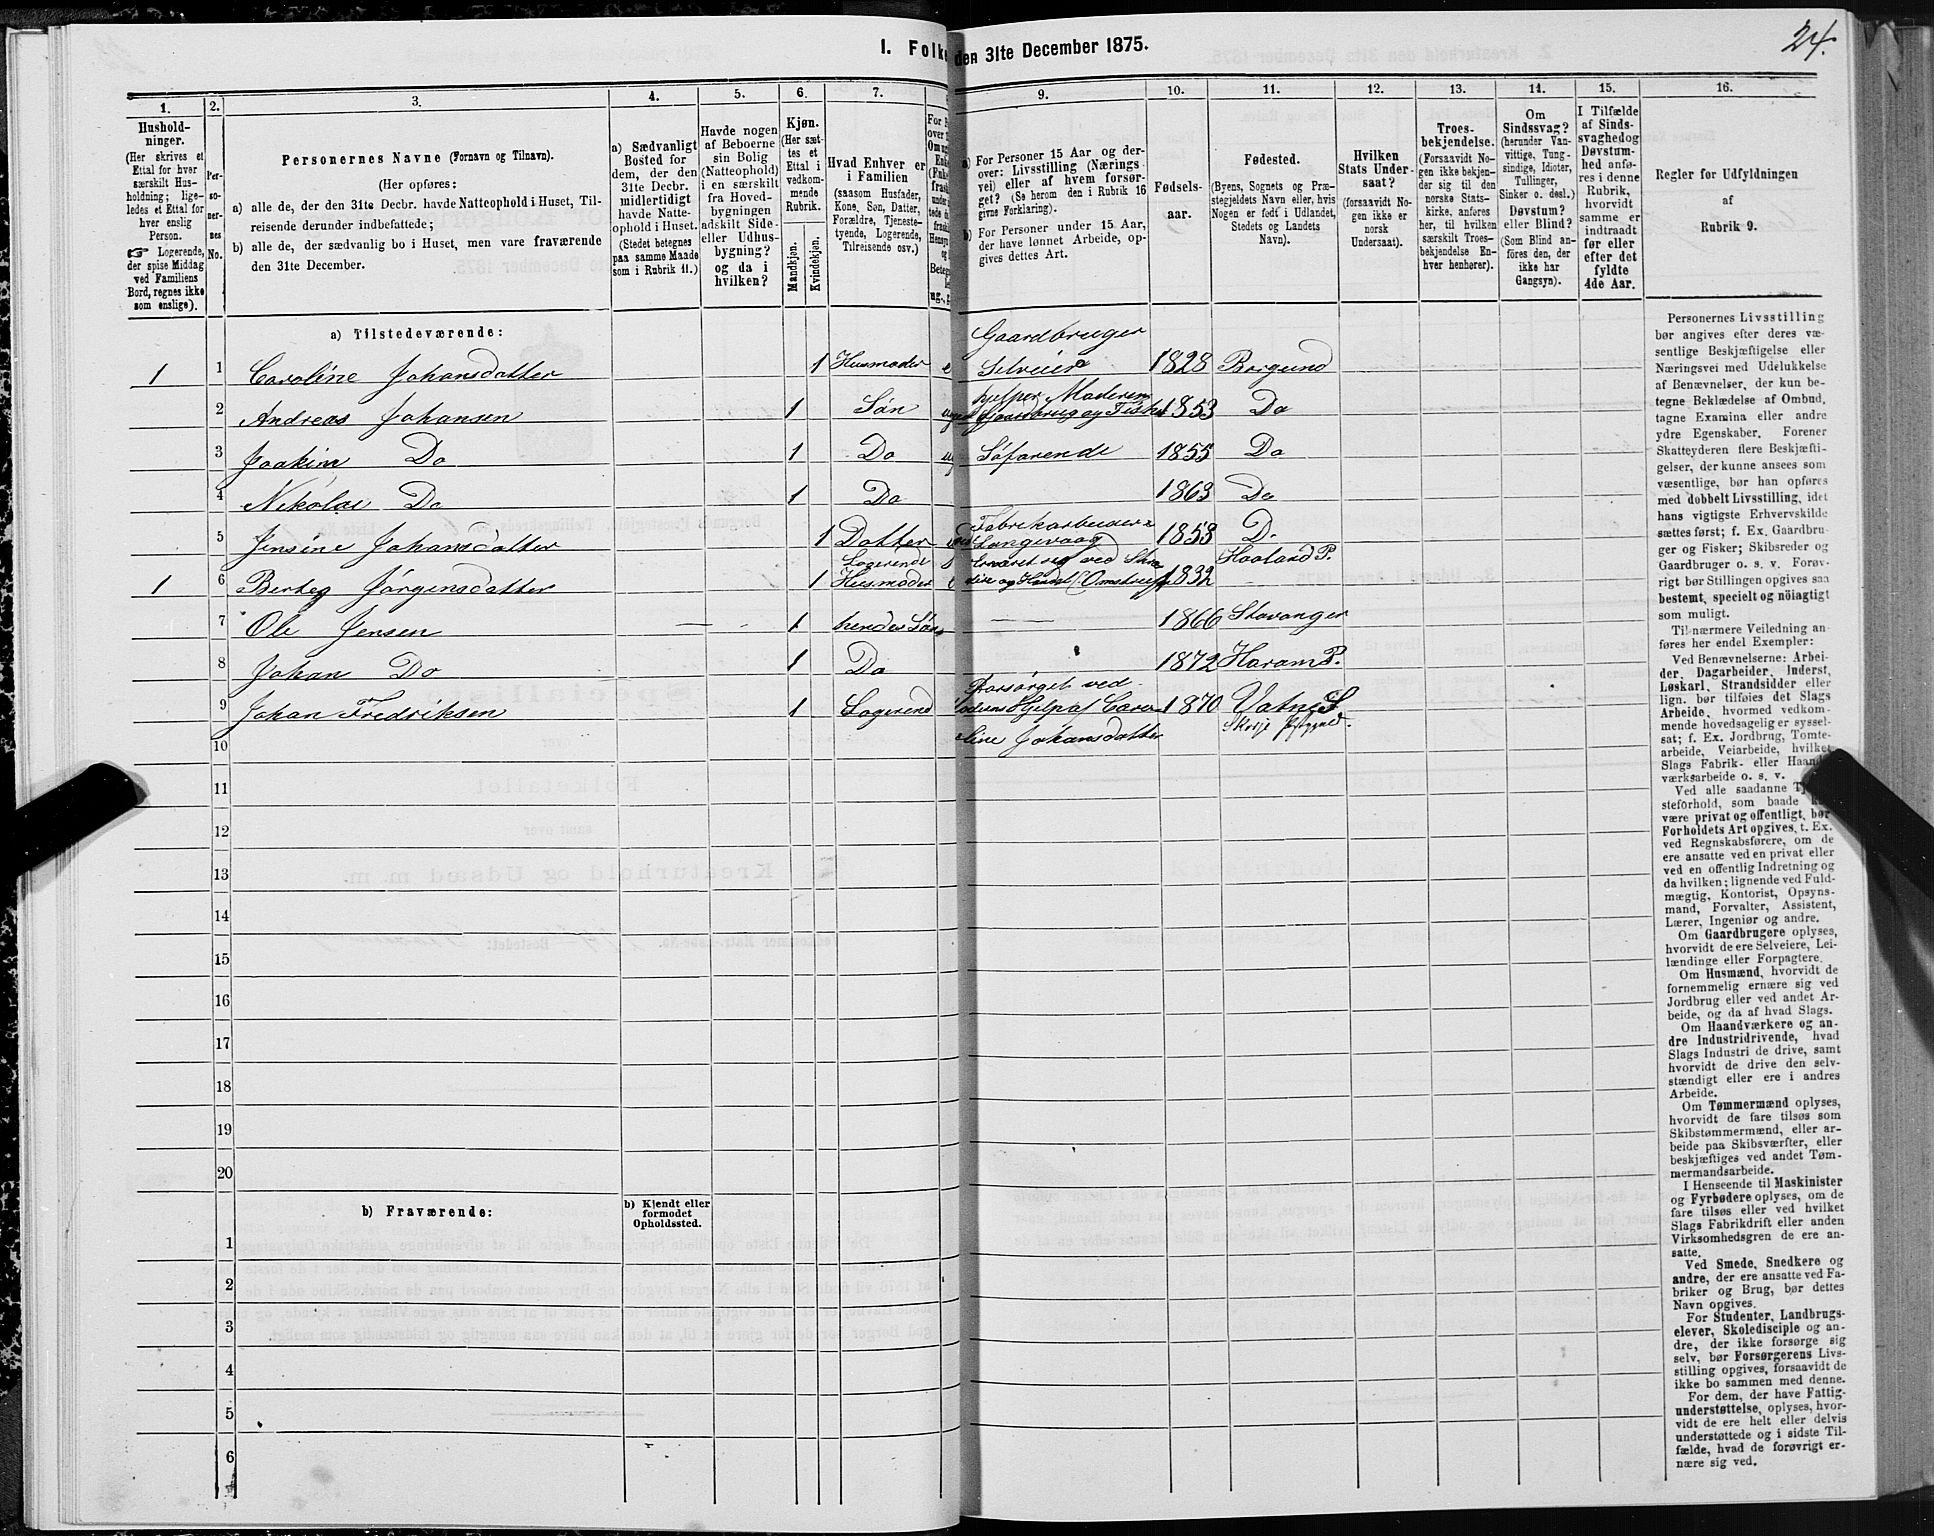 24.
I. Folke
den 31te December 1875.
1.
2.
3.
4.
5.
6.
7.
9.
10.
11.
12.
13.
14.
15.
16.
Hushold-
ninger.
(Her skrives et
Ettal for hver
særskilt Hus-
holdning; lige-
ledes et Ettal for
hver enslig
Person.
☞ Logerende,
der spise Middag
ved Familiens
Bord, regnes ikke
som enslige).
Per-
so-
ner-
nes
No.
Personernes Navne (Fornavn og Tilnavn).
(Her opføres:
a) alle de, der den 31te Decbr. havde Natteophold i Huset, Til-
reisende derunder indbefattede;
b) alle de, der sædvanlig bo i Huset, men vare fraværende
den 31te December.
a) Sædvanligt
Bosted for
dem, der den
31te Decbr.
midlertidigt
havde Natte-
ophold i Huset.
(Stedet betegnes
paa samme Maade
som i Rubrik 11.)
Havde nogen
af Beboerne
sin Bolig
(Natteophold)
i en særskilt
fra Hoved-
bygningen
adskilt Side-
eller Udhus-
bygning?
og da i
hvilken?
Kjøn.
(Her sæt-
tes et
Ettal i
vedkom-
mende
Rubrik.
Mandkjøn.
Kvindekjøn.
Hvad Enhver er
i Familien
(saasom Husfader,
Kone, Søn, Datter,
Forældre, Tjeneste-
tyende, Logerende,
Tilreisende osv.)
a) For Personer 15 Aar og der-
over: Livsstilling (Nærings-
vei) eller af hvem forsør-
get? (Se herom den i Rubrik 16
givne Forklaring).
b) For Personer under 15 Aar,
der have lønnet Arbeide, op-
gives dettes Art.
Fødsels-
aar.
Fødested.
(Byens, Sognets og Præ-
stegjeldets Navn eller, hvis
Nogen er født i Udlandet,
Stedets og Landets
Navn).
Hvilken
Stats Under-
saat?
(forsaavidt No-
gen ikke er
norsk
Undersaat).
Troes-
bekjendelse.
(Forsaavidt No-
gen ikke bekjen-
der sig til den
norske Stats-
kirke, anføres
her, til hvilken
særskilt Troes-
bekjendelse En-
hver henhører).
Om
Sindssvag?
(herunder Van-
vittige, Tung-
sindige, Idioter,
Tullinger,
Sinker o. desl.)
Døvstum?
eller Blind?
(Som Blind an-
føres den, der
ikke har
Gangsyn).
I Tilfælde
af Sinds-
svaghed og
Døvstum-
hed anfø-
res i denne
Rubrik,
hvorvidt
samme er
indtraadt
før eller
efter det
fyldte
4de Aar.
Regler for Udfyldningen
af
Rubrik 9.
a) Tilstedeværende:
1 1 Caroline Johansdatter 1 Husmoder e Gaardbruger Selveier 1828 Borgund
2 Andreas Johansen 1 Søn hjelper Moderen Gaardbrug og Fisk 1853 Do
3 Joakim Do 1 Do Søfarende 1855 Do
4 Nikolai Do 1 Do 1863 Do
5 Jensine Johansdatter 1 Datter Fabrikarbeider Langevaag 1853 D.
1 6 Berteg Jørgensdatter 1 Logerende Husmoder 1832 Haaland P.
7 Ole Jensen 1 hendes Søn 1866 Stavanger
8 Johan Do 1 Do 1872 Haram P.
9 Johan Fredriksen 1 Logerend Forsørget ved Hjelp af Caro- 1870 Vatne S
10 line Johansdatter
11
12
13
14
15
16
17
18
19
20
b) Fraværende:
b) Kjendt eller
formodet
Opholdssted.
1
2
3
4
5
6
Personernes Livsstilling
bør angives efter deres væ-
sentlige Beskjæftigelse eller
Næringsvei med Udelukkelse
af Benævnelser, der kun be-
tegne Beklædelse af Ombud,
tagne Examina eller andre
ydre Egenskaber. Forener
Skatteyderen flere Beskjæfti-
gelser, der kunne ansees som
væsentlige, bør han opføres
med dobbelt Livsstilling, idet
hans vigtigste Erhvervskilde
sættes først; f. Ex. Gaardbru-
ger og Fisker; Skibsreder og
Gaardbruger o. s. v. Forøv-
rigt bør Stillingen opgives saa
bestemt, specielt og nöiagtigt
som muligt.
Til nærmere Veiledning an-
føres her endel Exempler:
Ved Benævnelserne: Arbei-
der, Dagarbeider, Inderst,
Løskarl, Strandsidder eller
lign. bør tilføies det Slags
Arbeide, hvormed vedkom-
mende hovedsagelig er syssel-
sat; f. Ex. Jordbrug, Tomte-
arbeide, Veiarbeide, hvilket
Slags Fabrik- eller Haand-
værksarbeide o. s. v.
Ved alle saadanne Tje-
steforhold, som baade kan
være privat og offentligt, bør
Forholdets Art opgives, t. Ex.
ved Regnskabsførere, om de
ere ansatte ved en privat eller
ved en offentlig Indretning og
da hvilken; lignende ved Fuld-
mægtig, Kontorist, Opsyns-
mand, Forvalter, Assistent,
Lærer, Ingeniør og andre.
Om Gaardbrugere oplyses,
hvorvidt de ere Selveiere, Lei-
lændinge eller Forpagtere.
Om Husmænd, hvorvidt de
fornemmelig ernære sig ved
Jordbrug eller ved andet Ar-
beide, og da af hvad Slags.
Om Haandværkere og an-
dre Industridrivende, hvad
Slags Industri de drive, samt
hvorvidt de drive den selv-
stændigt eller ere i andres
Arbeide.
Om Tømmermænd oplyses,
hvorvidt de fare tilsøs som
Skibstømmermænd, eller ar-
beide paa Skibsværfter, eller
beskjæftiges ved andet Tøm-
mermandsarbeide.
I Henseende til Maskinister
og Fyrbødere oplyses, om de
fare tilsøs eller ved hvilket
Slags Fabrikdrift eller anden
Virksomhedsgren de ere an-
satte.
Ved Smede, Snedkere og
andre, der ere ansatte ved Fa-
briker og Brug, bør dettes
Navn opgives.
For Studenter, Landbrugs-
elever, Skoledisciple og an-
dre, der ikke forsørge sig
selv, bør Forsørgerens Livs-
stilling opgives, forsaavidt de
ikke bo sammen med denne.
For dem, der have Fattig-
understøttelse, oplyses, hvor-
vidt de ere helt eller delvis
understøttede og i sidste Til-
fælde, hvad de forøvrigt er-
nære sig ved.